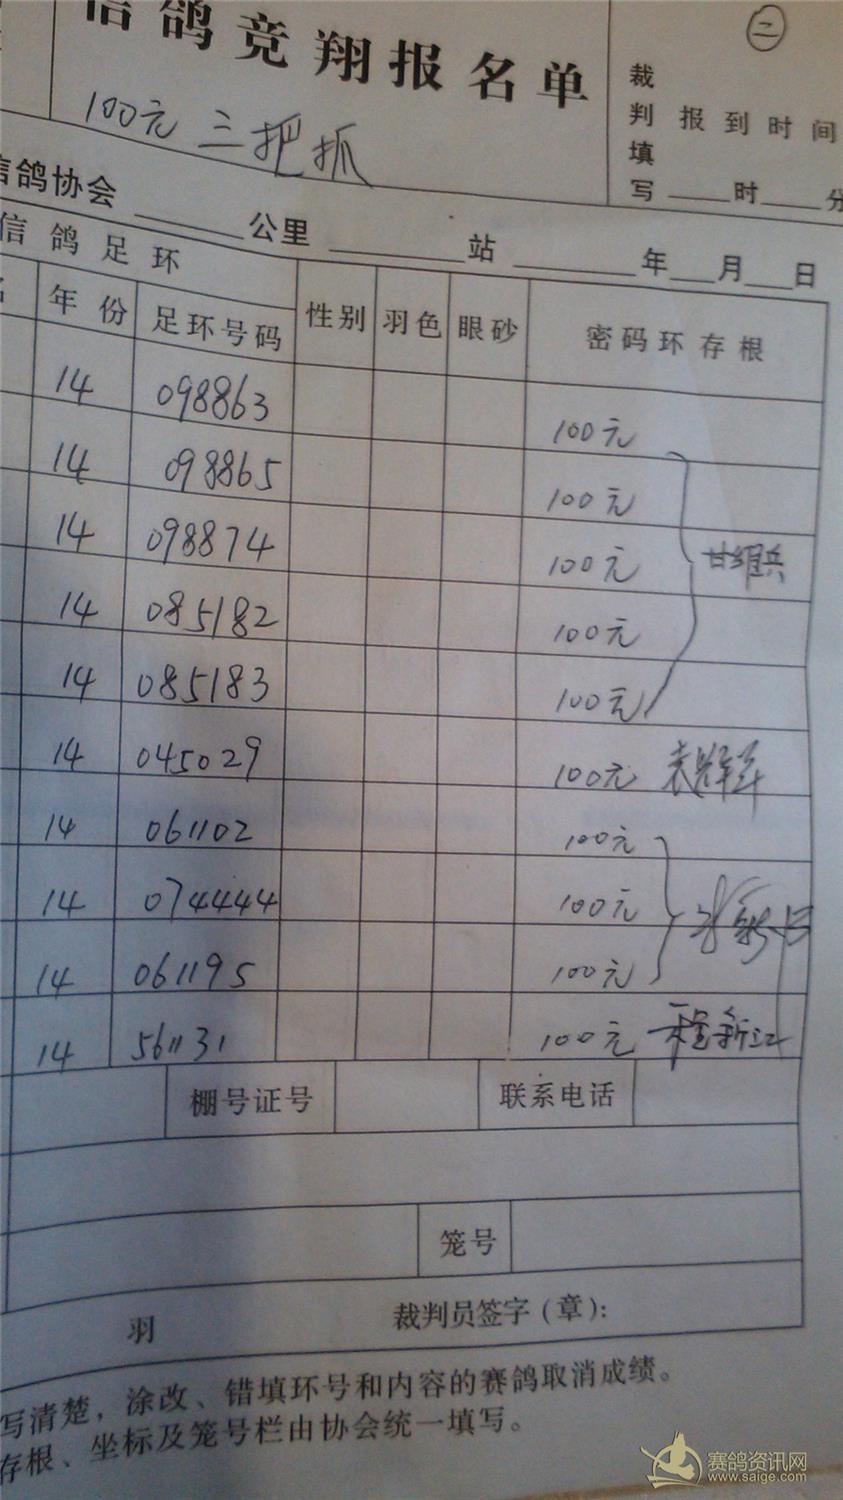 二
信鸽竞翔报名单
100元 三把抓
裁判填写
报到时间
时 分
信鸽协会 公里 站 年 月 日
信鸽足环
名 年份 足环号码 性别 羽色 眼砂 密码环存根
14 098863 100元
14 098865 100元
14 098874 100元 甘维兵
14 085182 100元
14 085183 100元
14 045029 100元
14 061102 100元
14 074444 100元
14 061195 100元
14 561131 100元 程新江
棚号证号 联系电话
笼号
羽 裁判员签字(章):
写清楚，涂改、错填环号和内容的赛鸽取消成绩。
存根、坐标及笼号栏由协会统一填写。
赛鸽资讯网
www.saige.com